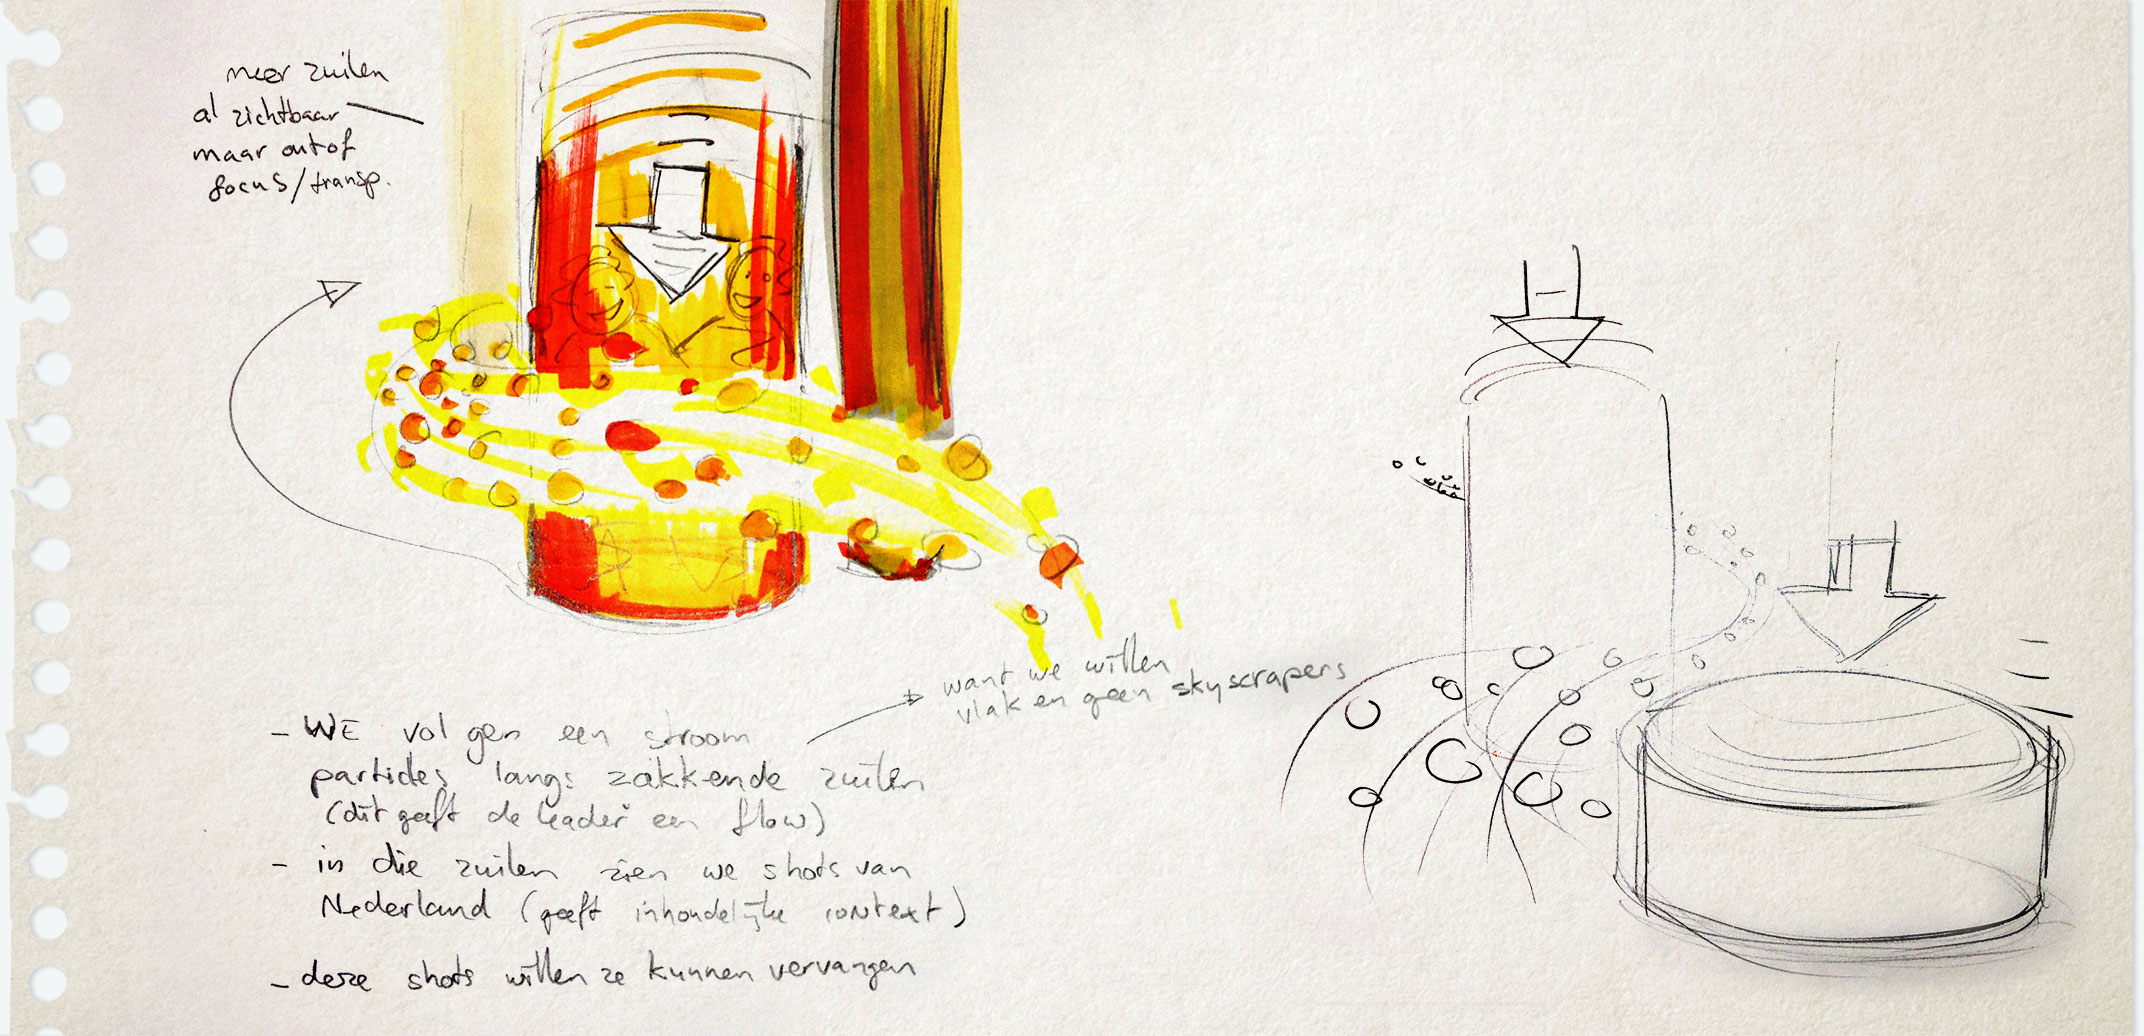 meer zuilen
al zichtbaar
maar out of
focus/transp.
want we willen
vlak en geen skyscrapers
- WE volgen een stroom
particles langs zakkende zuilen
(dit geeft de leader een flow)
- in die zuilen zien we shots van
Nederland (geeft inhoudelijke context)
- deze shots willen ze kunnen vervangen